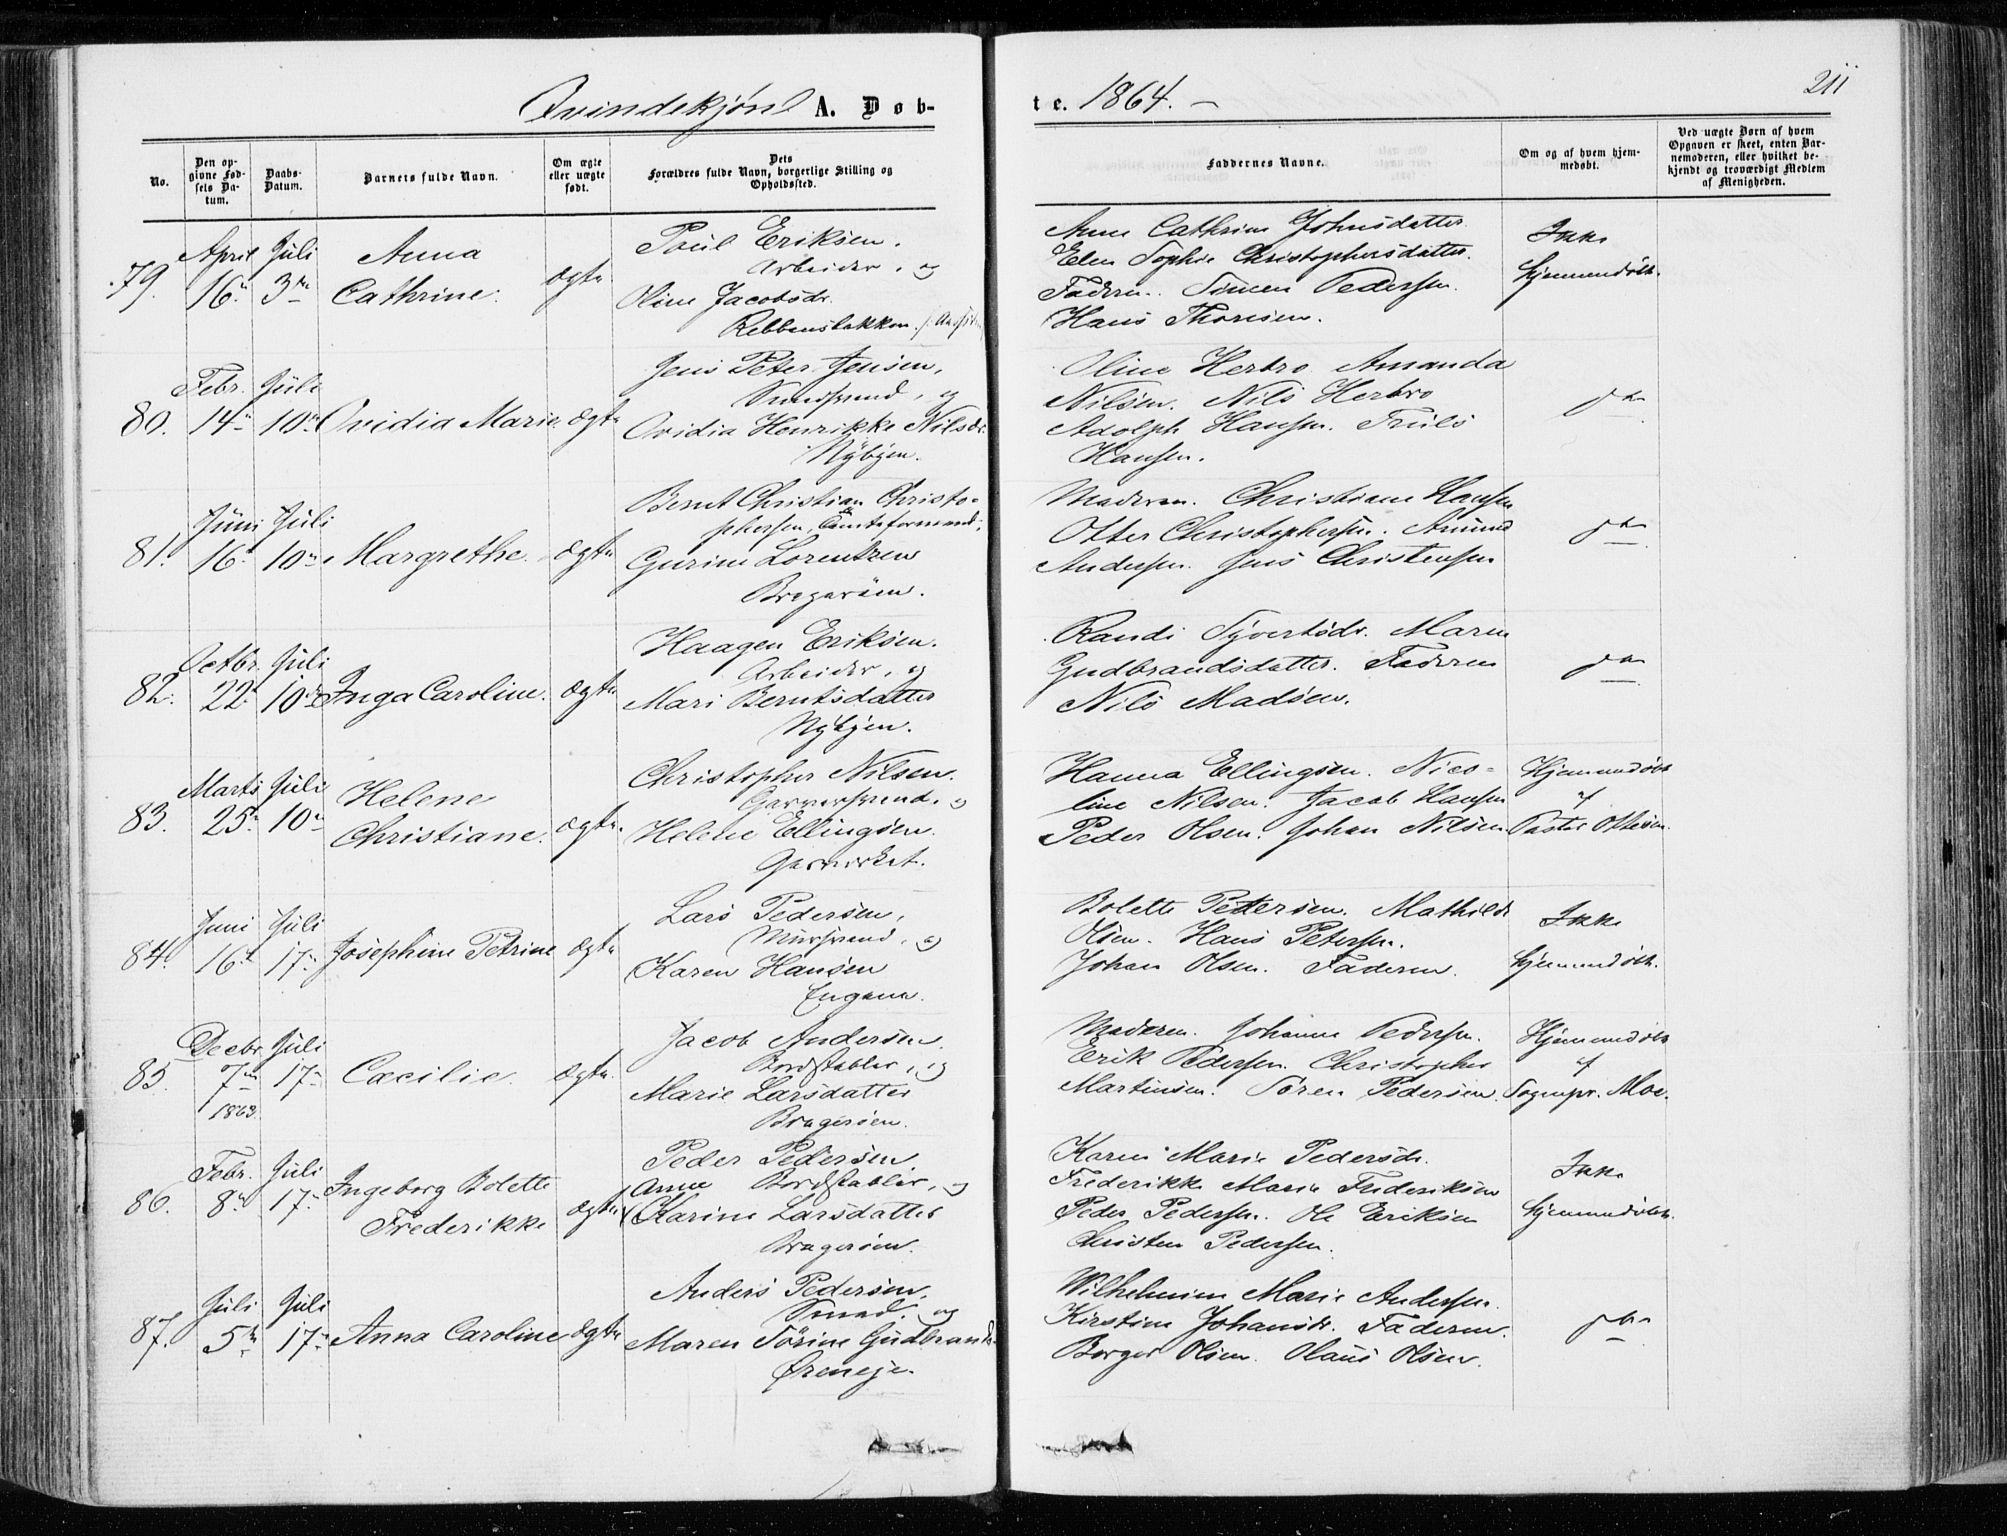 Qvindekjøn A. Døb-
te. 1864. -
211
No.
Den op-
givne Fød-
sels Da-
tum.
Daabs-
Datum.
Barnets fulde Navn.
Om ægte
eller uægte
født.
Dets
Forældres fulde Navn, borgerlige Stilling og
Opholdssted.
Faddernes Navne.
Om og af hvem hjem-
medøbt.
Ved uægte Børn af hvem
Opgaven er skeet, enten Bar-
nemoderen, eller hvilket be-
kjendt og troværdigt Medlem
af Menigheden.
79.
April
16
Juli
3
Anna
Cathrine.
Ægte
Poul Eriksen.
Arbeider, og
Oline Jacobsdr.
Rebbensbakken.
Anne Cathrine Johnsdatter.
Elen Sophie Christophersdatter.
Faderen. Simen Pedersen.
Hans Thoresen.
Ikke
hjemmedøbt.
80.
Febr.
14
Juli
10
Ovidia Marie
Ægte
Jens Peter Jensen,
Smedsvend, og
Ovidia Henrikke Nilsdr.
Nybyen.
Oline Herbro Amanda
Nilsen. Nils Herbro
Adolph Hansen. Truls
Hansen.
do
81.
Juni
16
Juli
10
Margrethe.
Ægte
Bernt Christian Christo-
phersen, Tomteformand,
Gurine Lorentzen
Bragerøen.
Moderen. Christiane Hansen
Otter Christophersen. Amund
Andersen. Jens Christensen
do
82.
Octbr.
22
Juli
10
Inga Caroline.
Ægte
Haagen Eriksen.
Arbeider, og
Mari Berntsdatter
Nybyen.
Randi Syvertsdr. Maren
Gudbrandsdatter. Faderen
Nils Madsen.
do
83.
Marts
25
Juli
10
Helene
Christiane.
Ægte.
Christopher Nilsen.
Garversvend, og
Helene Ellingsen.
Gjerverket.
Hanna Ellingsen. Nico-
line Nilsen. Jacob Hansen
Peder Olsen. Johan Nilsen.
Hjemmedøbt
af
Pastor Ottesen.
84.
Juni
16
Juli
17
Josephine Petrine
Ægte
Lars Pedersen,
Mursvend, og
Karen Hansen
Engene.
Bolette Pettersen. Mathilde
Olsen. Hans Petersen.
Johan Olsen. Faderen.
Ikke
hjemmedøbt.
85.
Decbr.
7
1863.
Juli
17
Cæcilie.
Ægte.
Jacob Andersen.
Bordstabler, og
Marie Larsdatter
Bragerøen.
Moderen. Johanne Pedersen.
Erik Pedersen. Christopher
Martinsen. Søren Pedersen.
Hjemmedøbt
af
Sognepr. Moe.
86.
Febr.
8
Juli
17
Ingeborg Bolette
Frederikke
Ægte
Peder Pedersen
Anne Bordstabler, og
Karine Larsdatter
Bragerøen.
Karen Marie Pedersdr.
Frederikke Marie Frederiksen
Peder Pedersen. Ole Eriksen
Christen Pedersen.
Ikke
hjemmedøbt.
87.
Juli
5
Juli
17
Anna Caroline
Ægte
Anders Pedersen,
Smed. og
Maren Sørine Gudbrands-
Øreneje.
Wilhelmine Marie Andersen.
Kirstine Johansdr. Faderen.
Borger Olsen. Olaus Olsen.
do